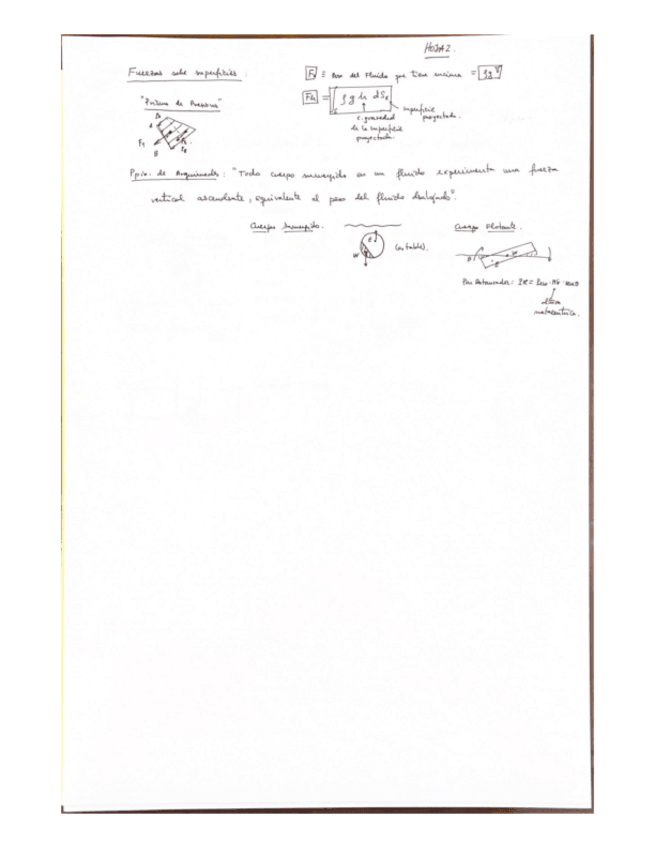 HOJA 2.
Fuerzas sobre superficies:
Fv ≡ Peso del Fluido que tiene encima = ρg∀
Fh = ρ g h dSx
"Prisma de Presiones"
superficie proyectada.
c. gravedad
de la superficie
proyectada.
Ppio. de Arquímedes: "Todo cuerpo sumergido en un fluido experimenta una fuerza
vertical ascendente, equivalente al peso del fluido desalojado".
Cuerpo Sumergido.
(estable).
E
W
Cuerpo Flotante.
Par Restaurador:
altura
metacéntrica.